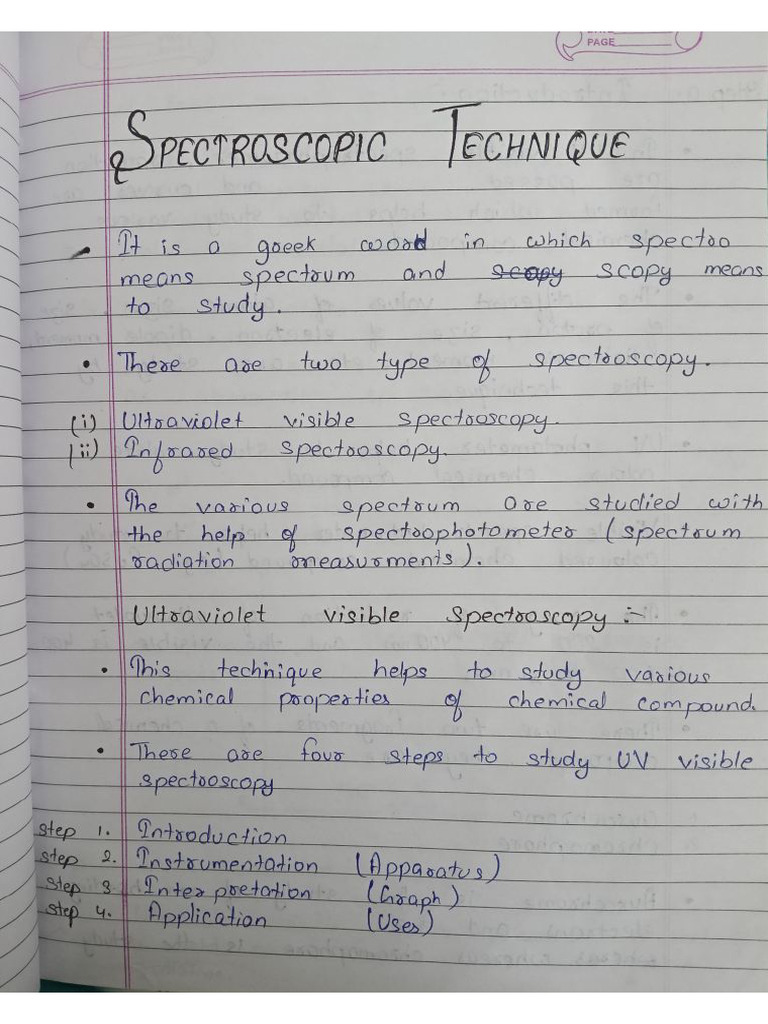 PAGE
SPECTROSCOPIC TECHNIQUE
It is a greek word in which spectro
means spectrum and scopy scopy means
to study.
• There are two type of spectroscopy.
(i) Ultraviolet visible spectroscopy.
(ii) Infrared spectroscopy.
• The various spectrum are studied with
the help of spectrophotometer (spectrum
radiation measurments).
Ultraviolet visible Spectroscopy :-
• This technique helps to study various
chemical properties of chemical compound.
• There are four steps to study UV visible
spectroscopy
Step 1. Introduction
Step 2. Instrumentation (Apparatus)
Step 3 Interpretation (Graph)
Step 4. Application (Uses)